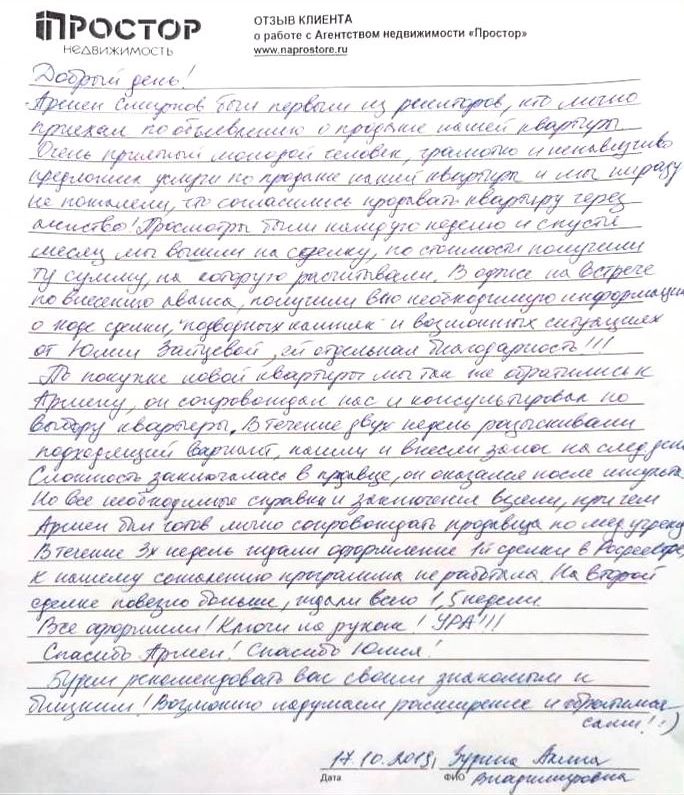 ПРОСТОР
НЕДВИЖИМОСТЬ
ОТЗЫВ КЛИЕНТА
о работе с Агентством недвижимости «Простор»
www.naprostore.ru
Добрый день!
Армен Смирнов был первым из риелторов, кто лично
приехал по объявлению о продаже нашей квартиры.
Очень приятный молодой человек, грамотно и ненавязчиво
предложил услуги по продаже нашей квартиры и мы ни разу
не пожалели, что согласились продавать квартиру через
агенство! Просмотры были каждую неделю и спустя
месяц мы вышли на сделку, по стоимости получили
ту сумму, на которую расчитывали. В офисе на встрече
по внесению аванса, получили всю необходимую информацию
о ходе сделки, "подводных камнях" и возможных ситуациях
от Юлии Зайцевой, ей отдельная благодарность!!!
По покупке новой квартиры мы так же обратились к
Армену, он сопровождал нас и консультировал по
выбору квартиры. В течение двух недель разыскивали
подходящий вариант, нашли и внесли залог на след день
Сложность заключалась в продавце, он оказался после инсульта.
Но все необходимые справки и заключения взяли, при чем
Армен был готов лично сопровождать продавца по мед.
В течение 3х недель ждали оформление 1й сделки в Росреестре,
к нашему сожалению программа не работала. На второй
сделке повезло больше, ждали всего 1,5 недели.
Все оформили! Ключи на руках! УРА!!!
Спасибо Армен! Спасибо Юлия!
Будем рекомендовать вас своим знакомым и
близким! Возможно надумаем расширение и обратимся
сами! :)
17.10.2019, Зурина
Дата ФИО Владимировна